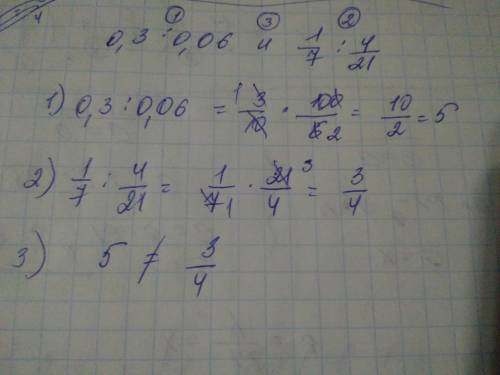 ① ③ ②
0,3 : 0,06 и 1/7 : 4/21
1) 0,3 : 0,06 = 3/10 · 100/6 = 10/2 = 5
2) 1/7 : 4/21 = 1/7 · 21/4 = 3/4
3) 5 ≠ 3/4